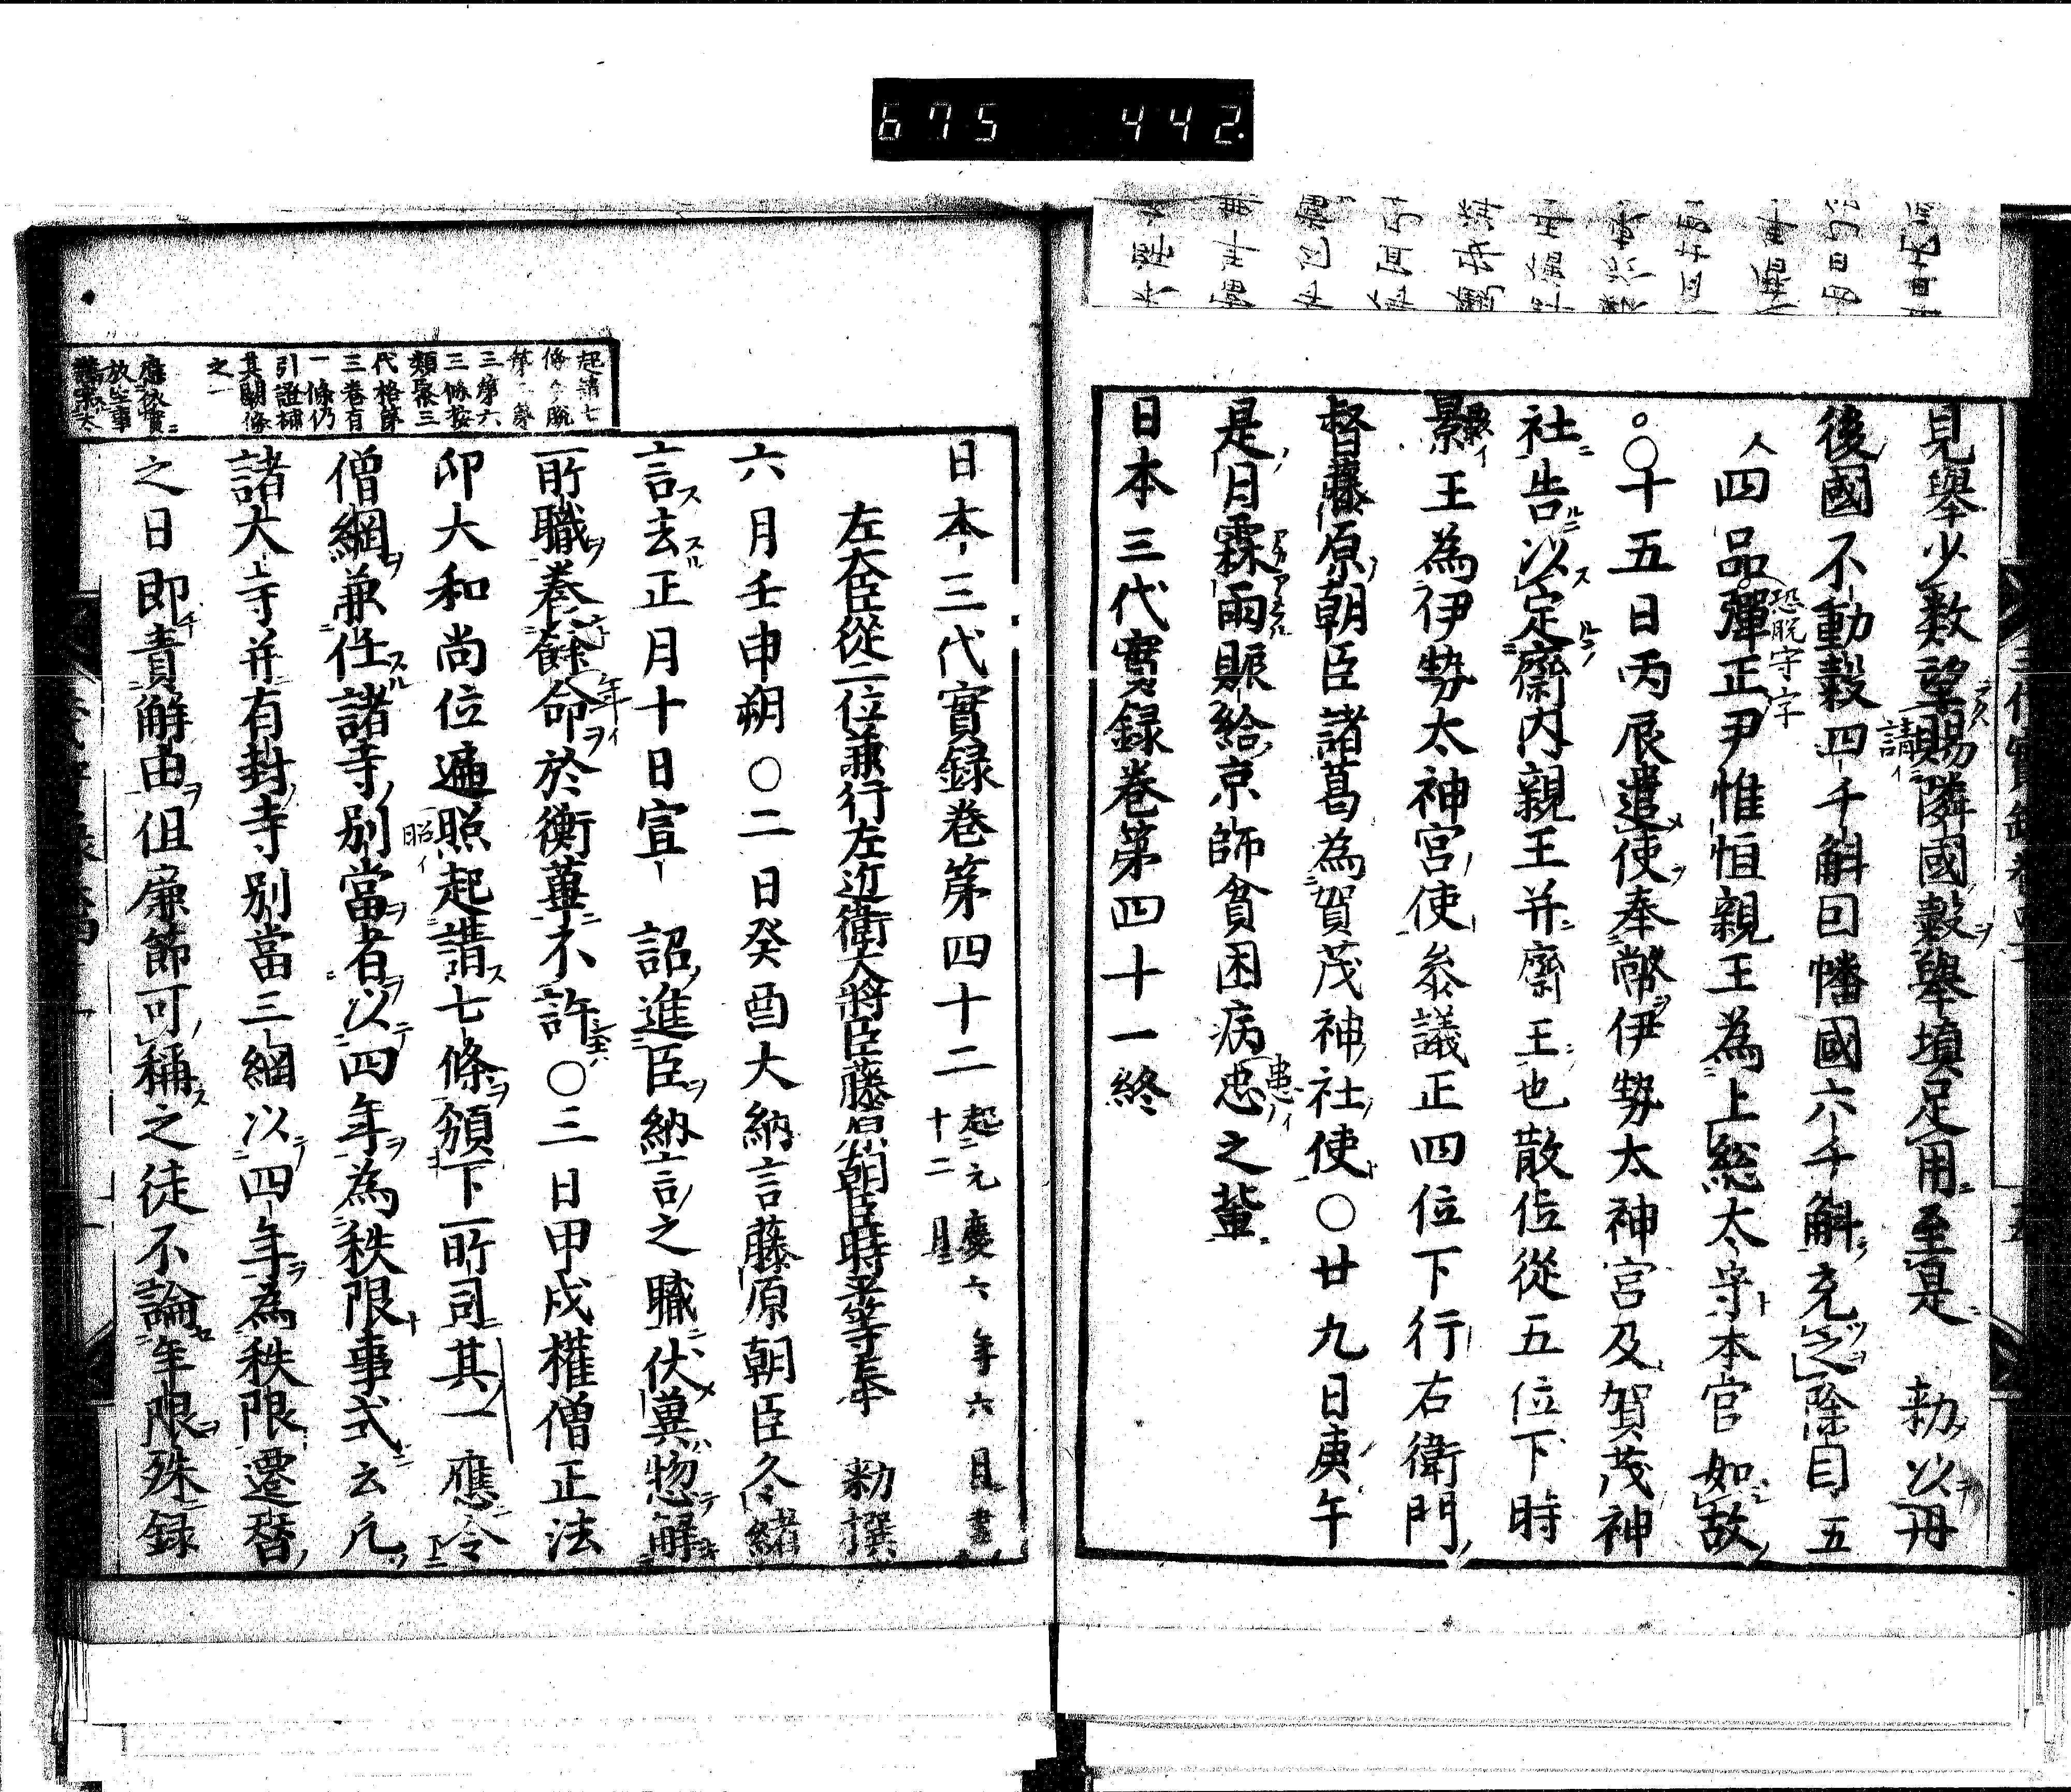 675 442
見舉少数望賜隣國穀舉填足用至是 勅以丹
請イ
後國不動穀四千斛因幡國六千斛充之除目五
人四品彈正尹惟恒親王為上総太守本官如故
恐脱守字
○十五日丙辰遣使奉幣伊勢太神宮及賀茂神
社告以定齋内親王并齋王也散位從五位下時
景王為伊勢太神宮使叅議正四位下行右衛門
督藤原朝臣諸葛為賀茂神社使○廿九日庚午
是月霖雨賑給京師貧困病患之輩
日本三代實録巻第四十一終
日本三代實録巻第四十二 起元慶六年六月盡十二月
左大臣從二位兼行左近衛大將臣藤原朝臣時平等奉 勅撰
六月壬申朔○二日癸酉大納言藤原朝臣冬緒
言去正月十日宣 詔進臣納言之職伏冀惣解
所職養餘命於衡蓽不許○三日甲戌權僧正法
年ヲイ
印大和尚位遍照起請七條頒下所司其一應令
昭イ
僧綱兼任諸寺別當者以四年為秩限事式云凡
諸大寺并有封寺別當三綱以四年為秩限遷替
之日即責解由但廉節可稱之徒不論年限殊録
起請七
條今脱
第二第
三第六
三條按
類聚三
代格第
三巻有
一條仍
引證補
其闕條
之一
應依實
放生事